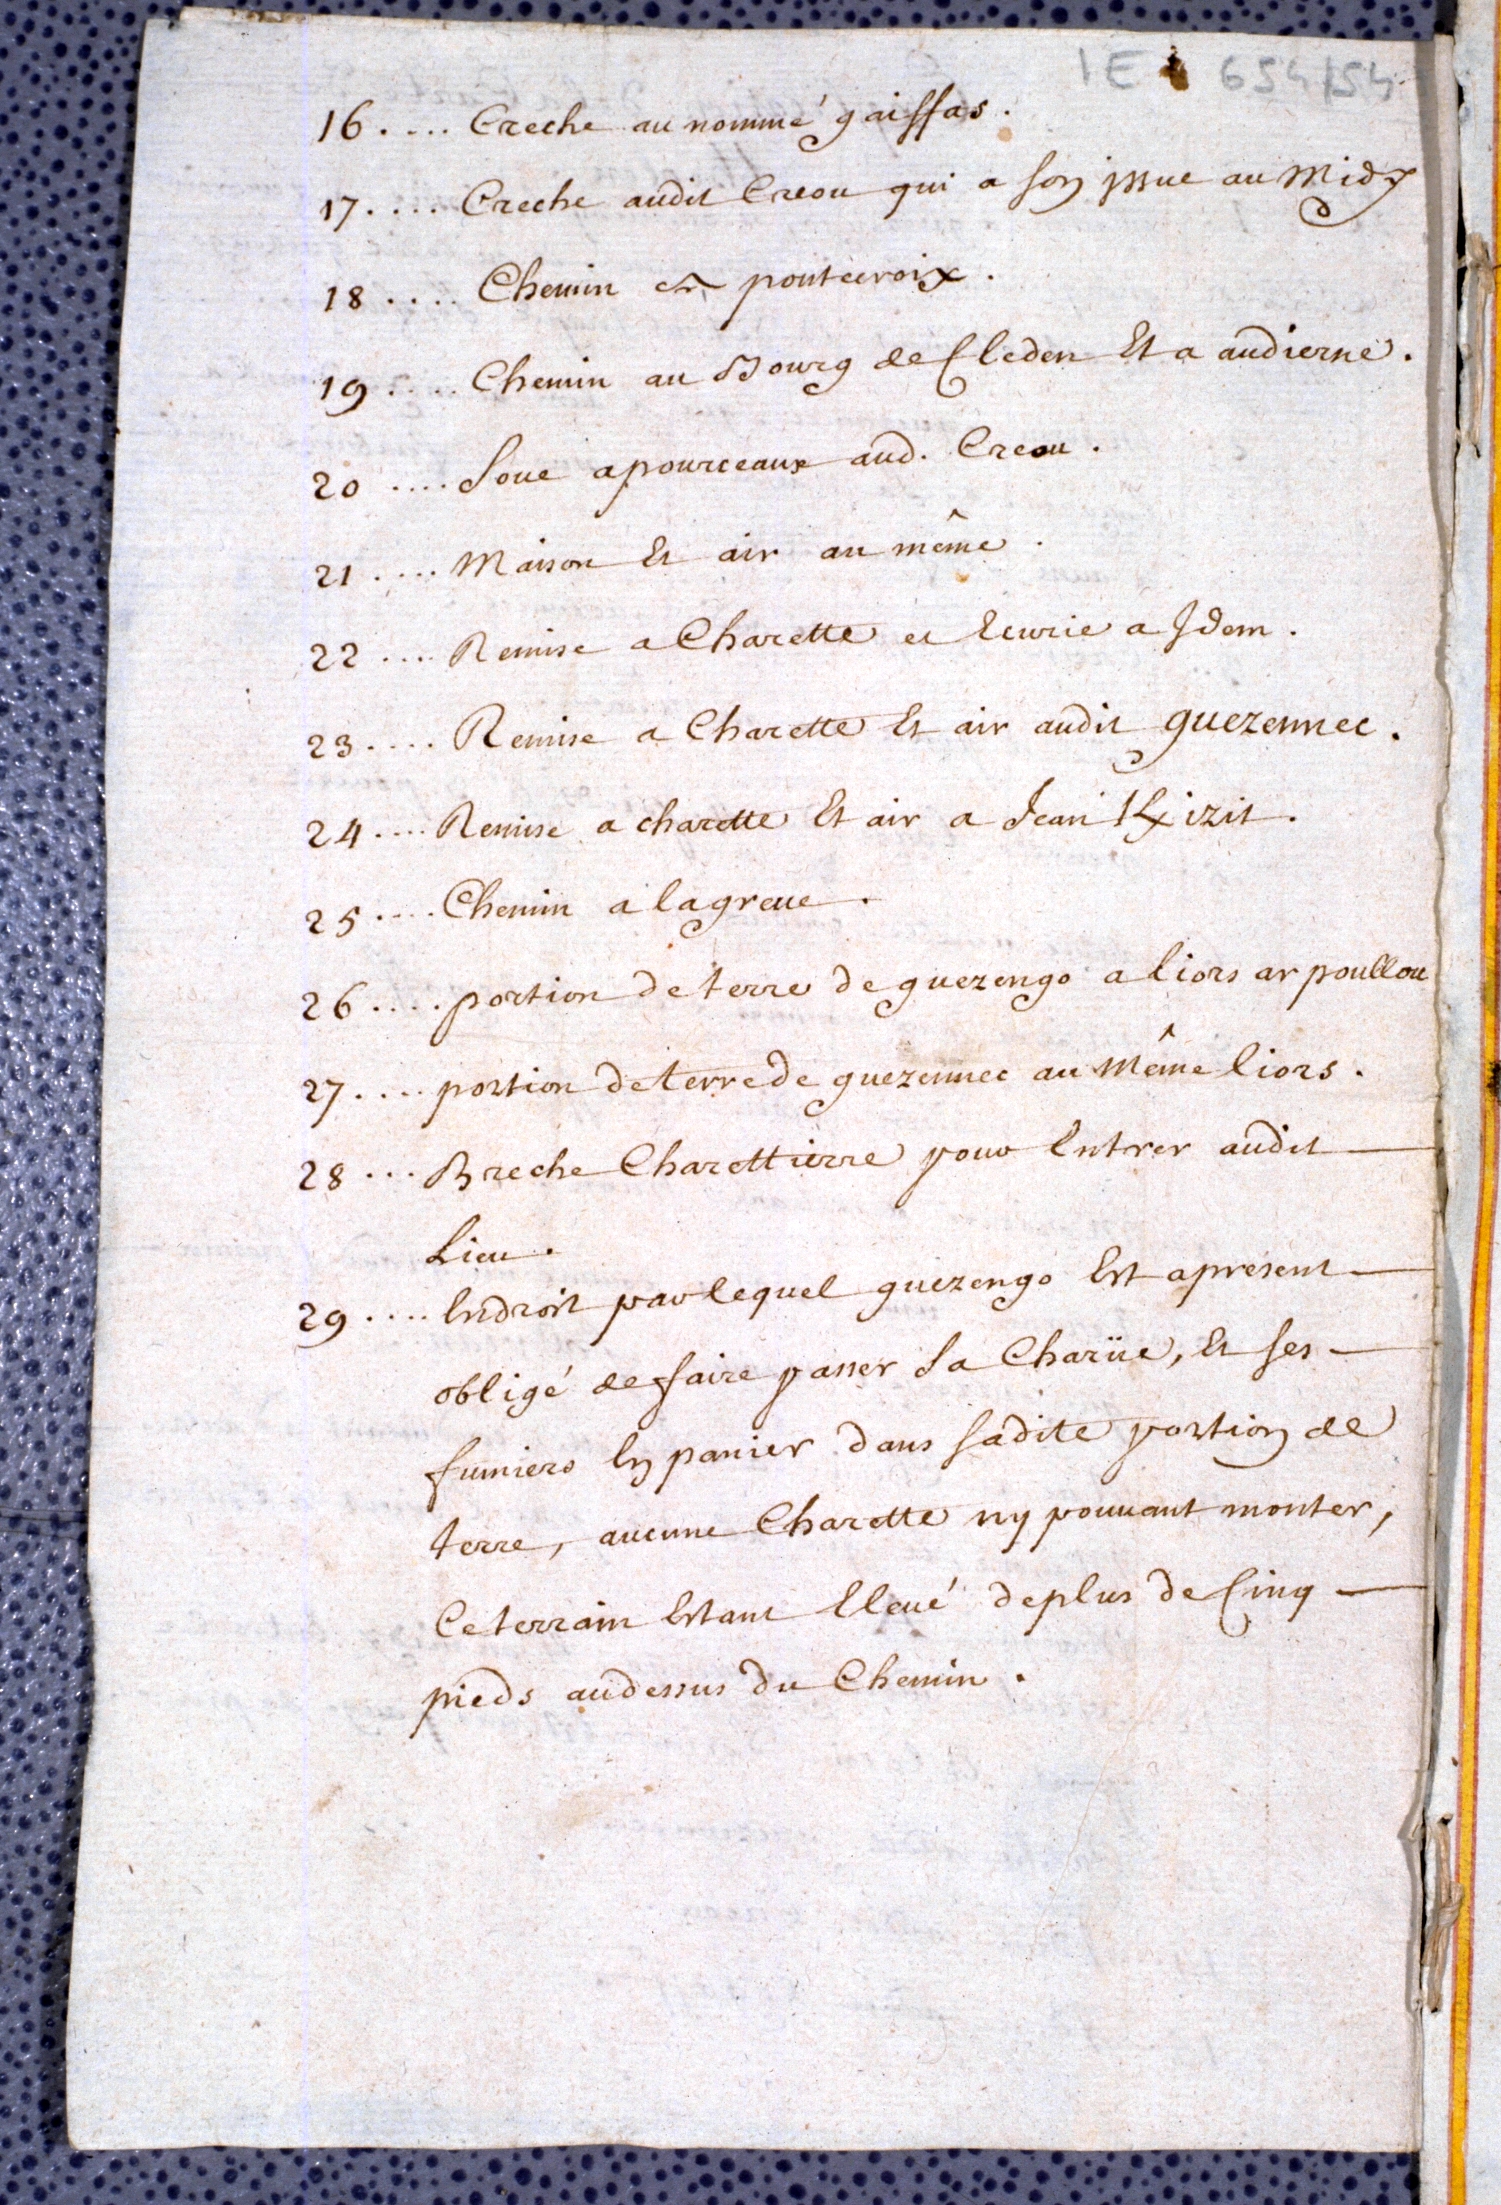 1 E 654/54
16 .... Creche au nommé gaiffas.
17 .... Creche audit Creou qui a son jssue au Midy
18 .... Chemin a pontecroix.
19 .... Chemin au Bourg de Cleden Et a audierne.
20 .... Soue a pourceaux aud. Creou.
21 .... Maison Et air au même.
22 .... Remise a Charette et Ecurie a Idem.
23 .... Remise a Charette Et air audit guezennec.
24 .... Remise a charette Et air a Jean Kizit.
25 .... Chemin a la greue.
26 .... portion de terre de guezengo a liors ar poullou
27 .... portion de terre de guezennec au Même liors.
28 ... Breche Charettierre pour Entrer audit
Lieu.
29 .... Endroit par lequel guezengo Est apresent
obligé de faire passer Sa Charüe, Et ses
fumiers En panier dans sadite portion de
terre, aucune Charette ny pouuant monter,
Ce terrain Estant Eleué de plus de Cinq
pieds audessus du Chemin.